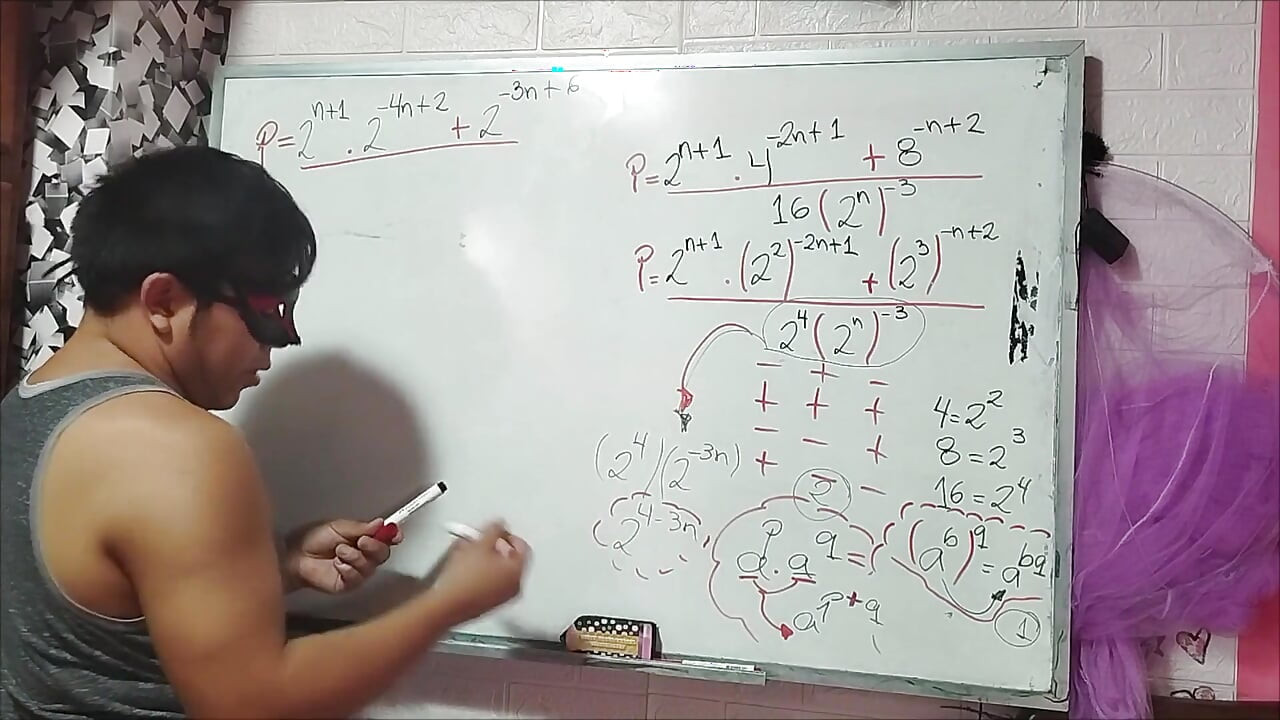 P = 2^{n+1} . 2^{-4n+2} + 2^{-3n+6}
P = 2^{n+1} . 4^{-2n+1} + 8^{-n+2}
16 (2^n)^{-3}
P = 2^{n+1} . (2^2)^{-2n+1} + (2^3)^{-n+2}
2^4 (2^n)^{-3}
- + -
+ + +
- - +
+ - -
4 = 2^2
8 = 2^3
16 = 2^4
(2^4)(2^{-3n})
2^{4-3n}
2
a^p . a^q =
a^{p+q}
(a^b)^q = a^{bq}
1